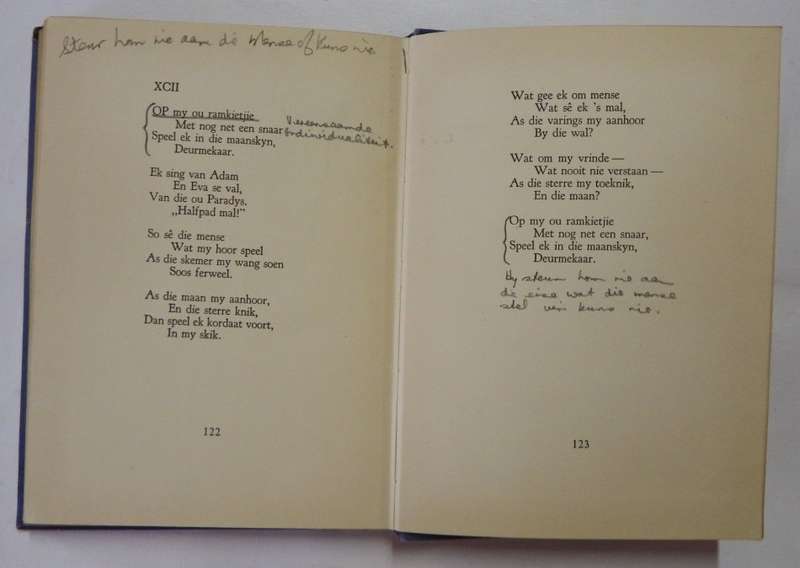 steur hom nie aan die mense of kuns nie
XCII
OP my ou ramkietjie
Met nog net een snaar,
Speel ek in die maanskyn,
Deurmekaar.
Vereensaamde
Individualiteit.
Ek sing van Adam
En Eva se val,
Van die ou Paradys,
„Halfpad mal!"
So sê die mense
Wat my hoor speel
As die skemer my wang soen
Soos ferweel.
As die maan my aanhoor,
En die sterre knik,
Dan speel ek kordaat voort,
In my skik.
122
Wat gee ek om mense
Wat sê ek 's mal,
As die varings my aanhoor
By die wal?
Wat om my vrinde —
Wat nooit nie verstaan —
As die sterre my toeknik,
En die maan?
Op my ou ramkietjie
Met nog net een snaar,
Speel ek in die maanskyn,
Deurmekaar.
Hy steur hom nie aan
die eise wat die mense
stel vir kuns nie.
123